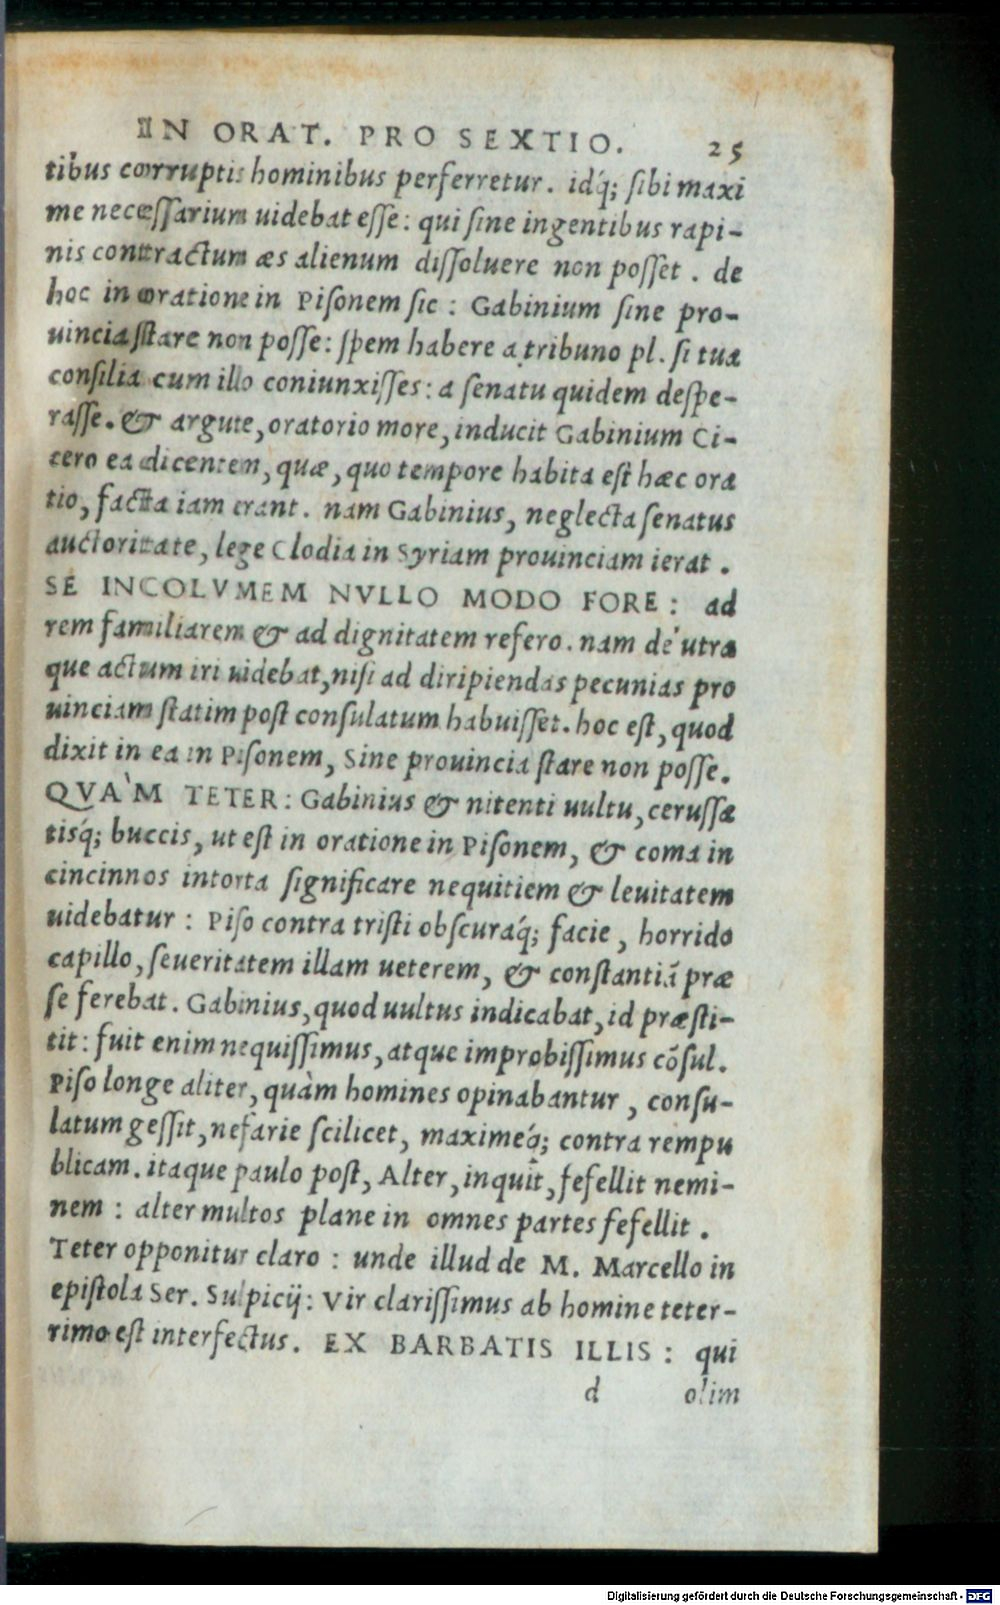 IN ORAT. PRO SEXTIO. 25
tibus corruptis hominibus perferretur. idq́; sibi maxi
me necessarium uidebat esse: qui sine ingentibus rapi-
nis contractum æs alienum dissoluere non posset. de
hoc in oratione in Pisonem sic: Gabinium sine pro-
uincia stare non posse: spem habere a tribuno pl. si tua
consilia cum illo coniunxisses: a senatu quidem despe-
rasse. & argute, oratorio more, inducit Gabinium Ci-
cero ea dicentem, quæ, quo tempore habita est hæc ora
tio, facta iam erant. nam Gabinius, neglecta senatus
auctoritate, lege Clodia in Syriam prouinciam ierat.
SE INCOLVMEM NVLLO MODO FORE: ad
rem familiarem & ad dignitatem refero. nam de utra
que actum iri uidebat, nisi ad diripiendas pecunias pro
uinciam statim post consulatum habuisset. hoc est, quod
dixit in ea in Pisonem, Sine prouincia stare non posse.
QVÀM TETER: Gabinius & nitenti uultu, cerussa
tisq́; buccis, ut est in oratione in Pisonem, & coma in
cincinnos intorta significare nequitiem & leuitatem
uidebatur: Piso contra tristi obscuraq́; facie, horrido
capillo, seueritatem illam ueterem, & constantiã præ
se ferebat. Gabinius, quod uultus indicabat, id præsti-
tit: fuit enim nequissimus, atque improbissimus cõsul.
Piso longe aliter, quàm homines opinabantur, consu-
latum gessit, nefarie scilicet, maximeq́; contra rempu
blicam. itaque paulo post, Alter, inquit, fefellit nemi-
nem: alter multos plane in omnes partes fefellit.
Teter opponitur claro: unde illud de M. Marcello in
epistola Ser. Sulpicij: Vir clarissimus ab homine teter-
rimo est interfectus. EX BARBATIS ILLIS: qui
d olim
Digitalisierung gefördert durch die Deutsche Forschungsgemeinschaft - DFG